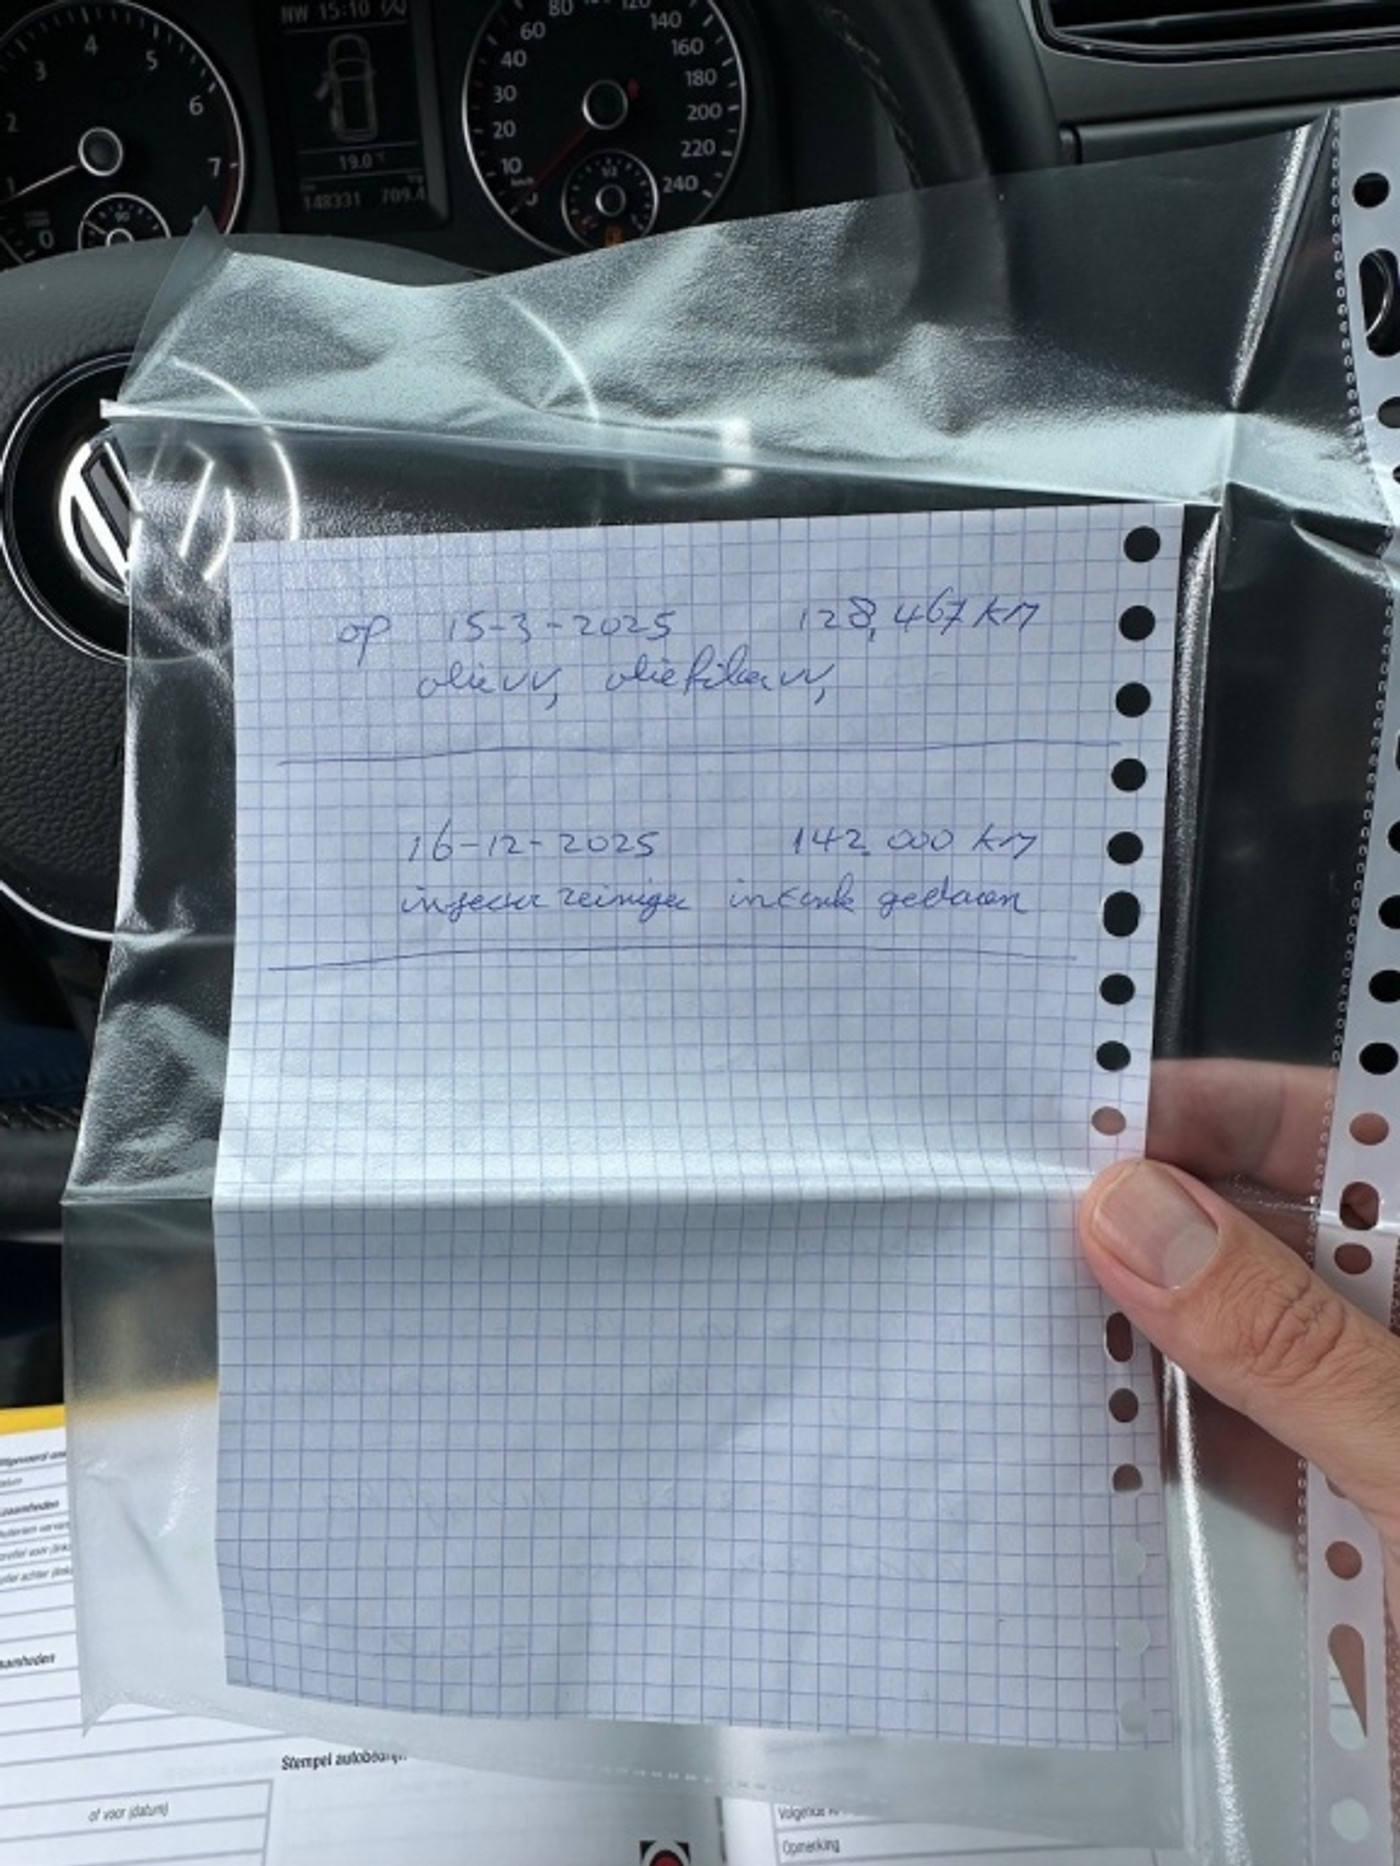 3 4 5 6 7
2
1
0
NW 15:10
19.0 °C
148331 709.4
10 20 30 40 60 80 100 120 140 160 180 200 220 240
op 15-3-2025 128,467 KM
olie vv, oliefilter vv,
16-12-2025 142.000 KM
injector reiniger in tank gedaan
Stempel autobedrijf
of voor (datum)
Opmerking